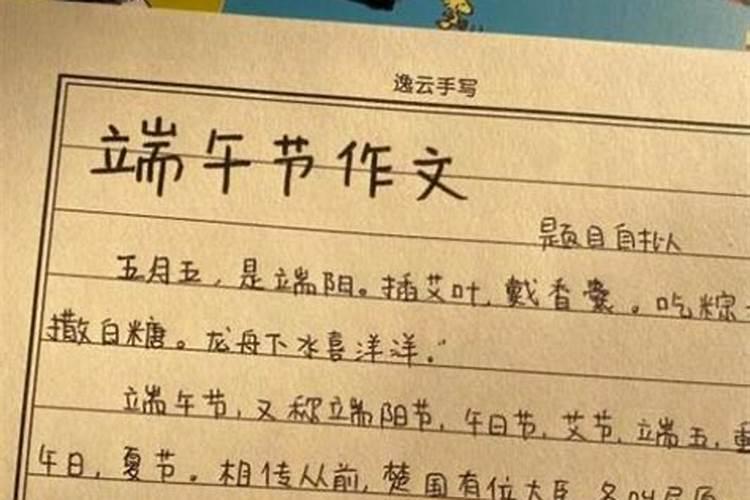 逸云手写
端午节作文
题目自拟
五月五，是端阳。插艾叶，戴香囊。吃粽
撒白糖。龙舟下水喜洋洋。"
端午节，又称端阳节，午日节，艾节，端五，重
午日，夏节。相传从前，楚国有位大臣，名叫屈原